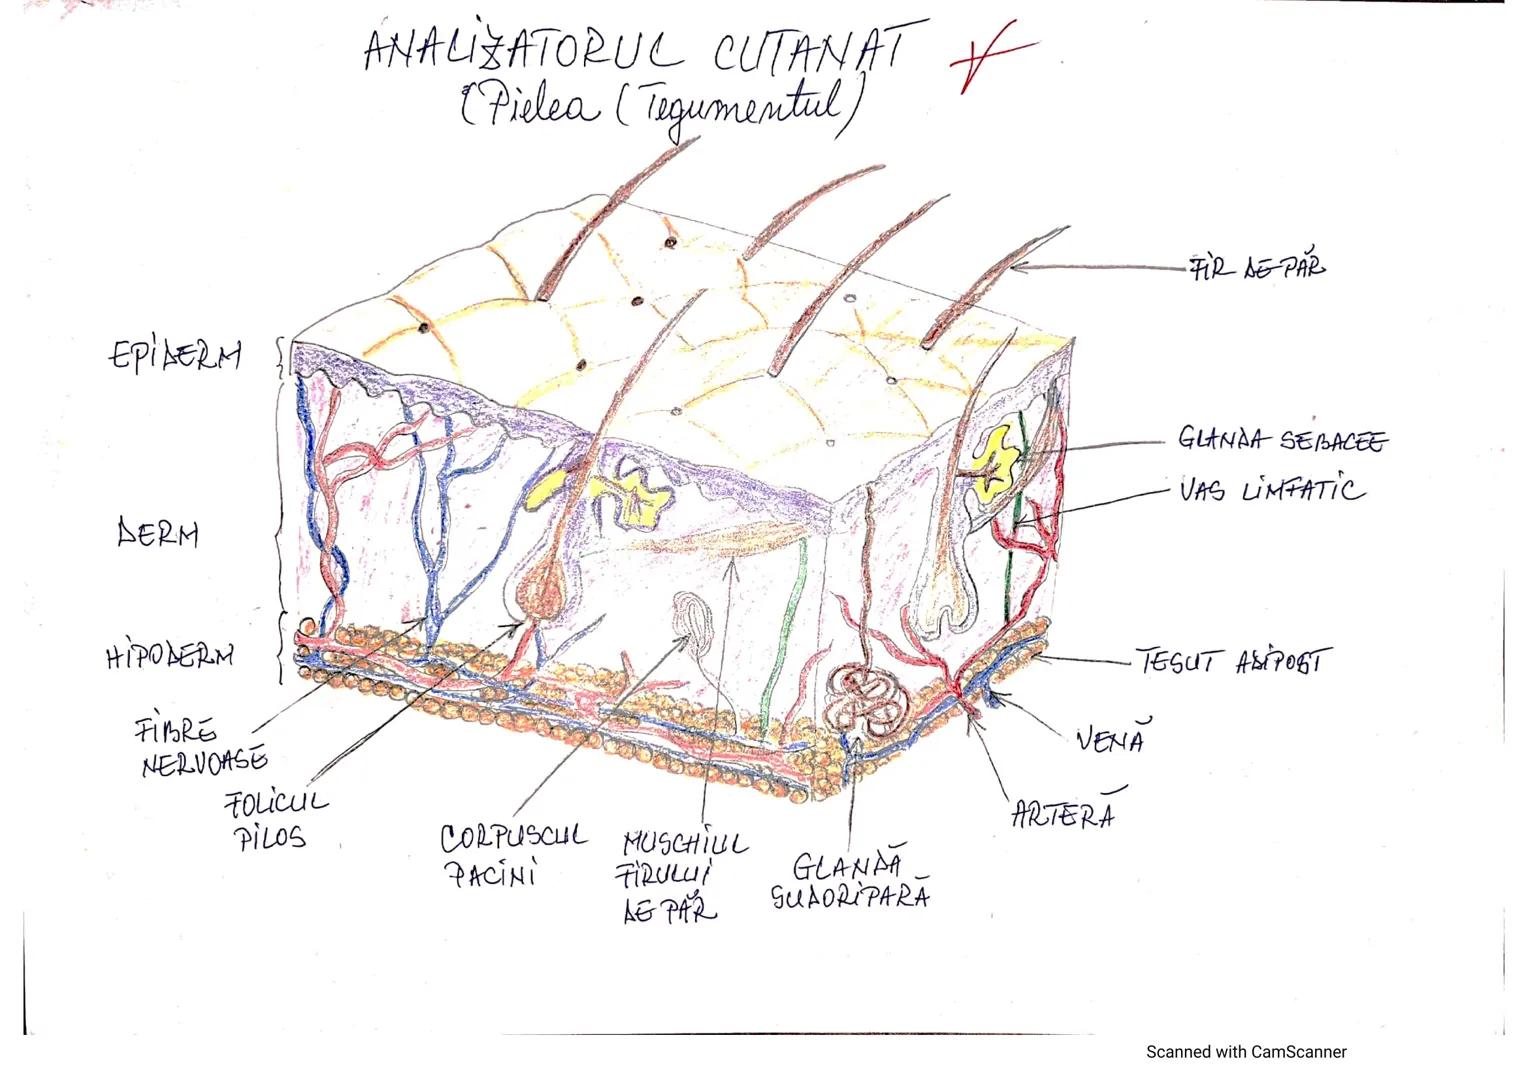 ANALIZATORUL CUTANAT
(Pielea (Tegumentul)
FIR DE PĂR
EPIDERM
GLANDA SEBACEE
VAS LIMFATIC
DERM
HIPODERM
TESUT ADIPOS
FIBRE
NERVOASE
VENĂ
FOLICUL
PILOS
ARTERĂ
CORPUSCUL
PACINI
MUSCHIUL
FIRULUI
DE PĂR
GLANDĂ
SUDORIPARĂ
Scanned with CamScanner